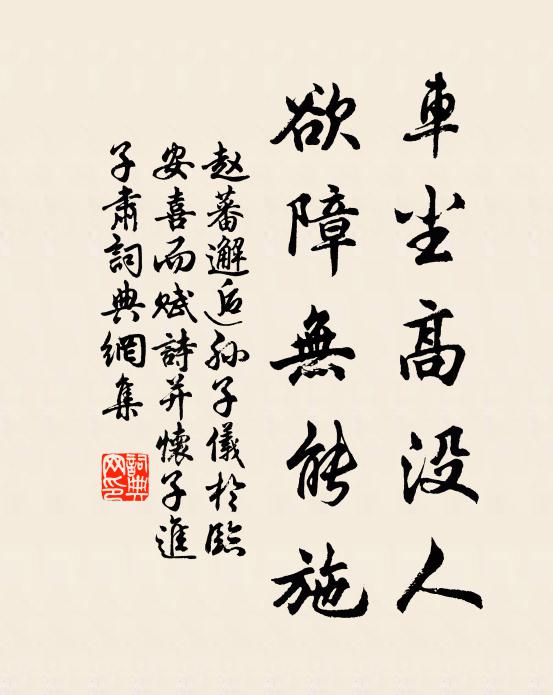 車尘高没人
欲障無能施
赵蕃邂逅孙子儀於臨
安喜而赋詩并懷子進
子肅詞典網集
詞典
网印